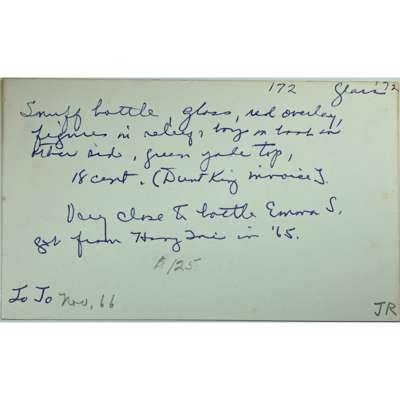 172 Glass '72
Snuff bottle, glass, red overlay,
figures in relief, boy on book on
other side, green jade top,
18 cent. (Dunt King invoice).
Very close to bottle Emma S.
got from in '65.
A/125
To Jo Nov, 66
JR